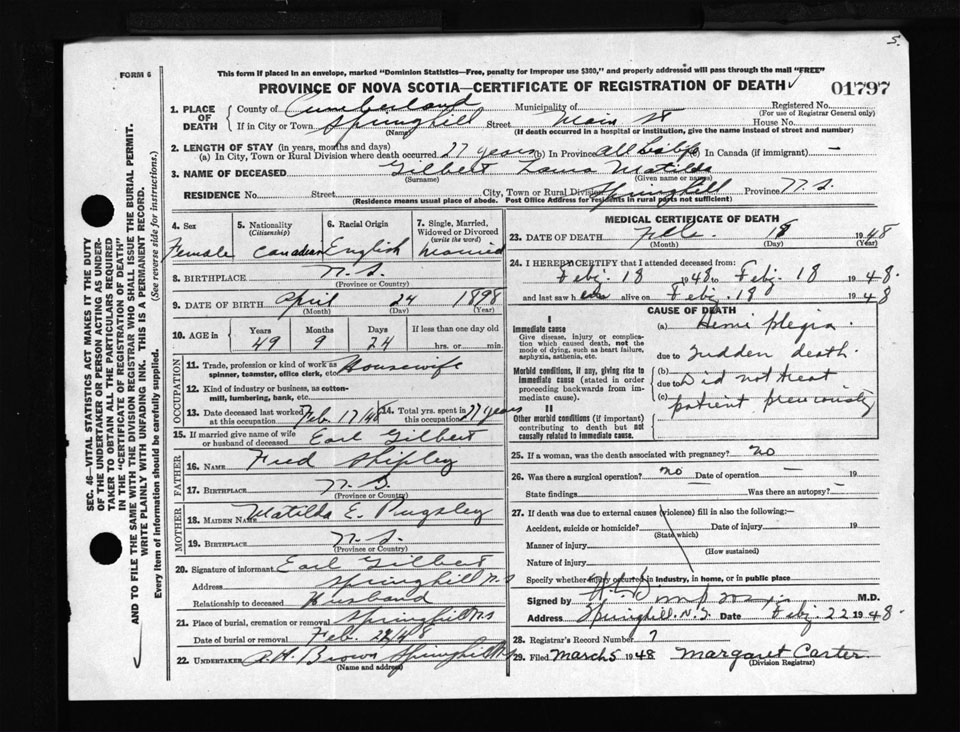 5.
FORM 6
This form if placed in an envelope, marked "Dominion Statistics—Free, penalty for improper use $300," and properly addressed will pass through the mail "FREE"
PROVINCE OF NOVA SCOTIA—CERTIFICATE OF REGISTRATION OF DEATH
01797
1. PLACE OF DEATH County of Cumberland Municipality of Registered No.
(For use of Registrar General only)
If in City or Town Springhill Street Main St House No.
(Name) (If death occurred in a hospital or institution, give the name instead of street and number)
2. LENGTH OF STAY (in years, months and days)
(a) In City, Town or Rural Division where death occurred 27 years (b) In Province all (c) In Canada (if immigrant) —
3. NAME OF DECEASED Gilbert Laura Matilda
(Surname) (Given name or names)
RESIDENCE No. Street City, Town or Rural Division Springhill Province N.S.
(Residence means usual place of abode. Post Office Address for residents in rural parts not sufficient)
4. Sex Female
5. Nationality (Citizenship) Canadian
6. Racial Origin English
7. Single, Married, Widowed or Divorced (write the word) Married
8. BIRTHPLACE N.S.
(Province or Country)
9. DATE OF BIRTH April 24 1898
(Month) (Day) (Year)
10. AGE in Years 49 Months 9 Days 24 If less than one day old hrs. or min.
OCCUPATION
11. Trade, profession or kind of work as spinner, teamster, office clerk, etc. Housewife
12. Kind of industry or business, as cotton-mill, lumbering, bank, etc.
13. Date deceased last worked at this occupation Feb. 17/48 14. Total yrs. spent in this occupation 27 years
15. If married give name of wife or husband of deceased Earl Gilbert
FATHER
16. NAME Fred Shipley
17. BIRTHPLACE N.S.
(Province or Country)
MOTHER
18. MAIDEN NAME Matilda E. Pugsley
19. BIRTHPLACE N.S.
(Province or Country)
20. Signature of informant Earl Gilbert
Address Springhill N.S
Relationship to deceased Husband
21. Place of burial, cremation or removal Springhill N.S
Date of burial or removal Feb.
22. UNDERTAKER A.H. Brown Springhill N.S
(Name and address)
MEDICAL CERTIFICATE OF DEATH
23. DATE OF DEATH 18 1948
(Month) (Day) (Year)
24. I HEREBY CERTIFY that I attended deceased from:
Feby. 18 1948 to Feby 18 1948.
and last saw h alive on Feby. 18 1948
CAUSE OF DEATH
I
Immediate cause
Give disease, injury or complication which caused death, not the mode of dying, such as heart failure, asphyxia, asthenia, etc.
(a) Hemi plegia.
due to Sudden death
Morbid conditions, if any, giving rise to immediate cause (stated in order proceeding backwards from immediate cause).
(b)
due to Did not treat
(c) patient previously
II
Other morbid conditions (if important) contributing to death but not causally related to immediate cause.
25. If a woman, was the death associated with pregnancy? no
26. Was there a surgical operation? no Date of operation — 19
State findings Was there an autopsy? —
27. If death was due to external causes (violence) fill in also the following:—
Accident, suicide or homicide? Date of injury 19
(State which)
Manner of injury
(How sustained)
Nature of injury
Specify whether injury occurred in industry, in home, or in public place
Signed by M.D.
Address Springhill. N.S. Date Feby. 22 1948.
28. Registrar's Record Number 7
29. Filed March 5 1948 Margaret Carter
(Division Registrar)
SEC. 46—VITAL STATISTICS ACT MAKES IT THE DUTY
OF THE UNDERTAKER OR PERSON ACTING AS UNDER-
TAKER TO OBTAIN ALL THE PARTICULARS REQUIRED
IN THE "CERTIFICATE OF REGISTRATION OF DEATH"
AND TO FILE THE SAME WITH THE DIVISION REGISTRAR WHO SHALL ISSUE THE BURIAL PERMIT.
WRITE PLAINLY WITH UNFADING INK. THIS IS A PERMANENT RECORD.
Every item of information should be carefully supplied. (See reverse side for instructions.)